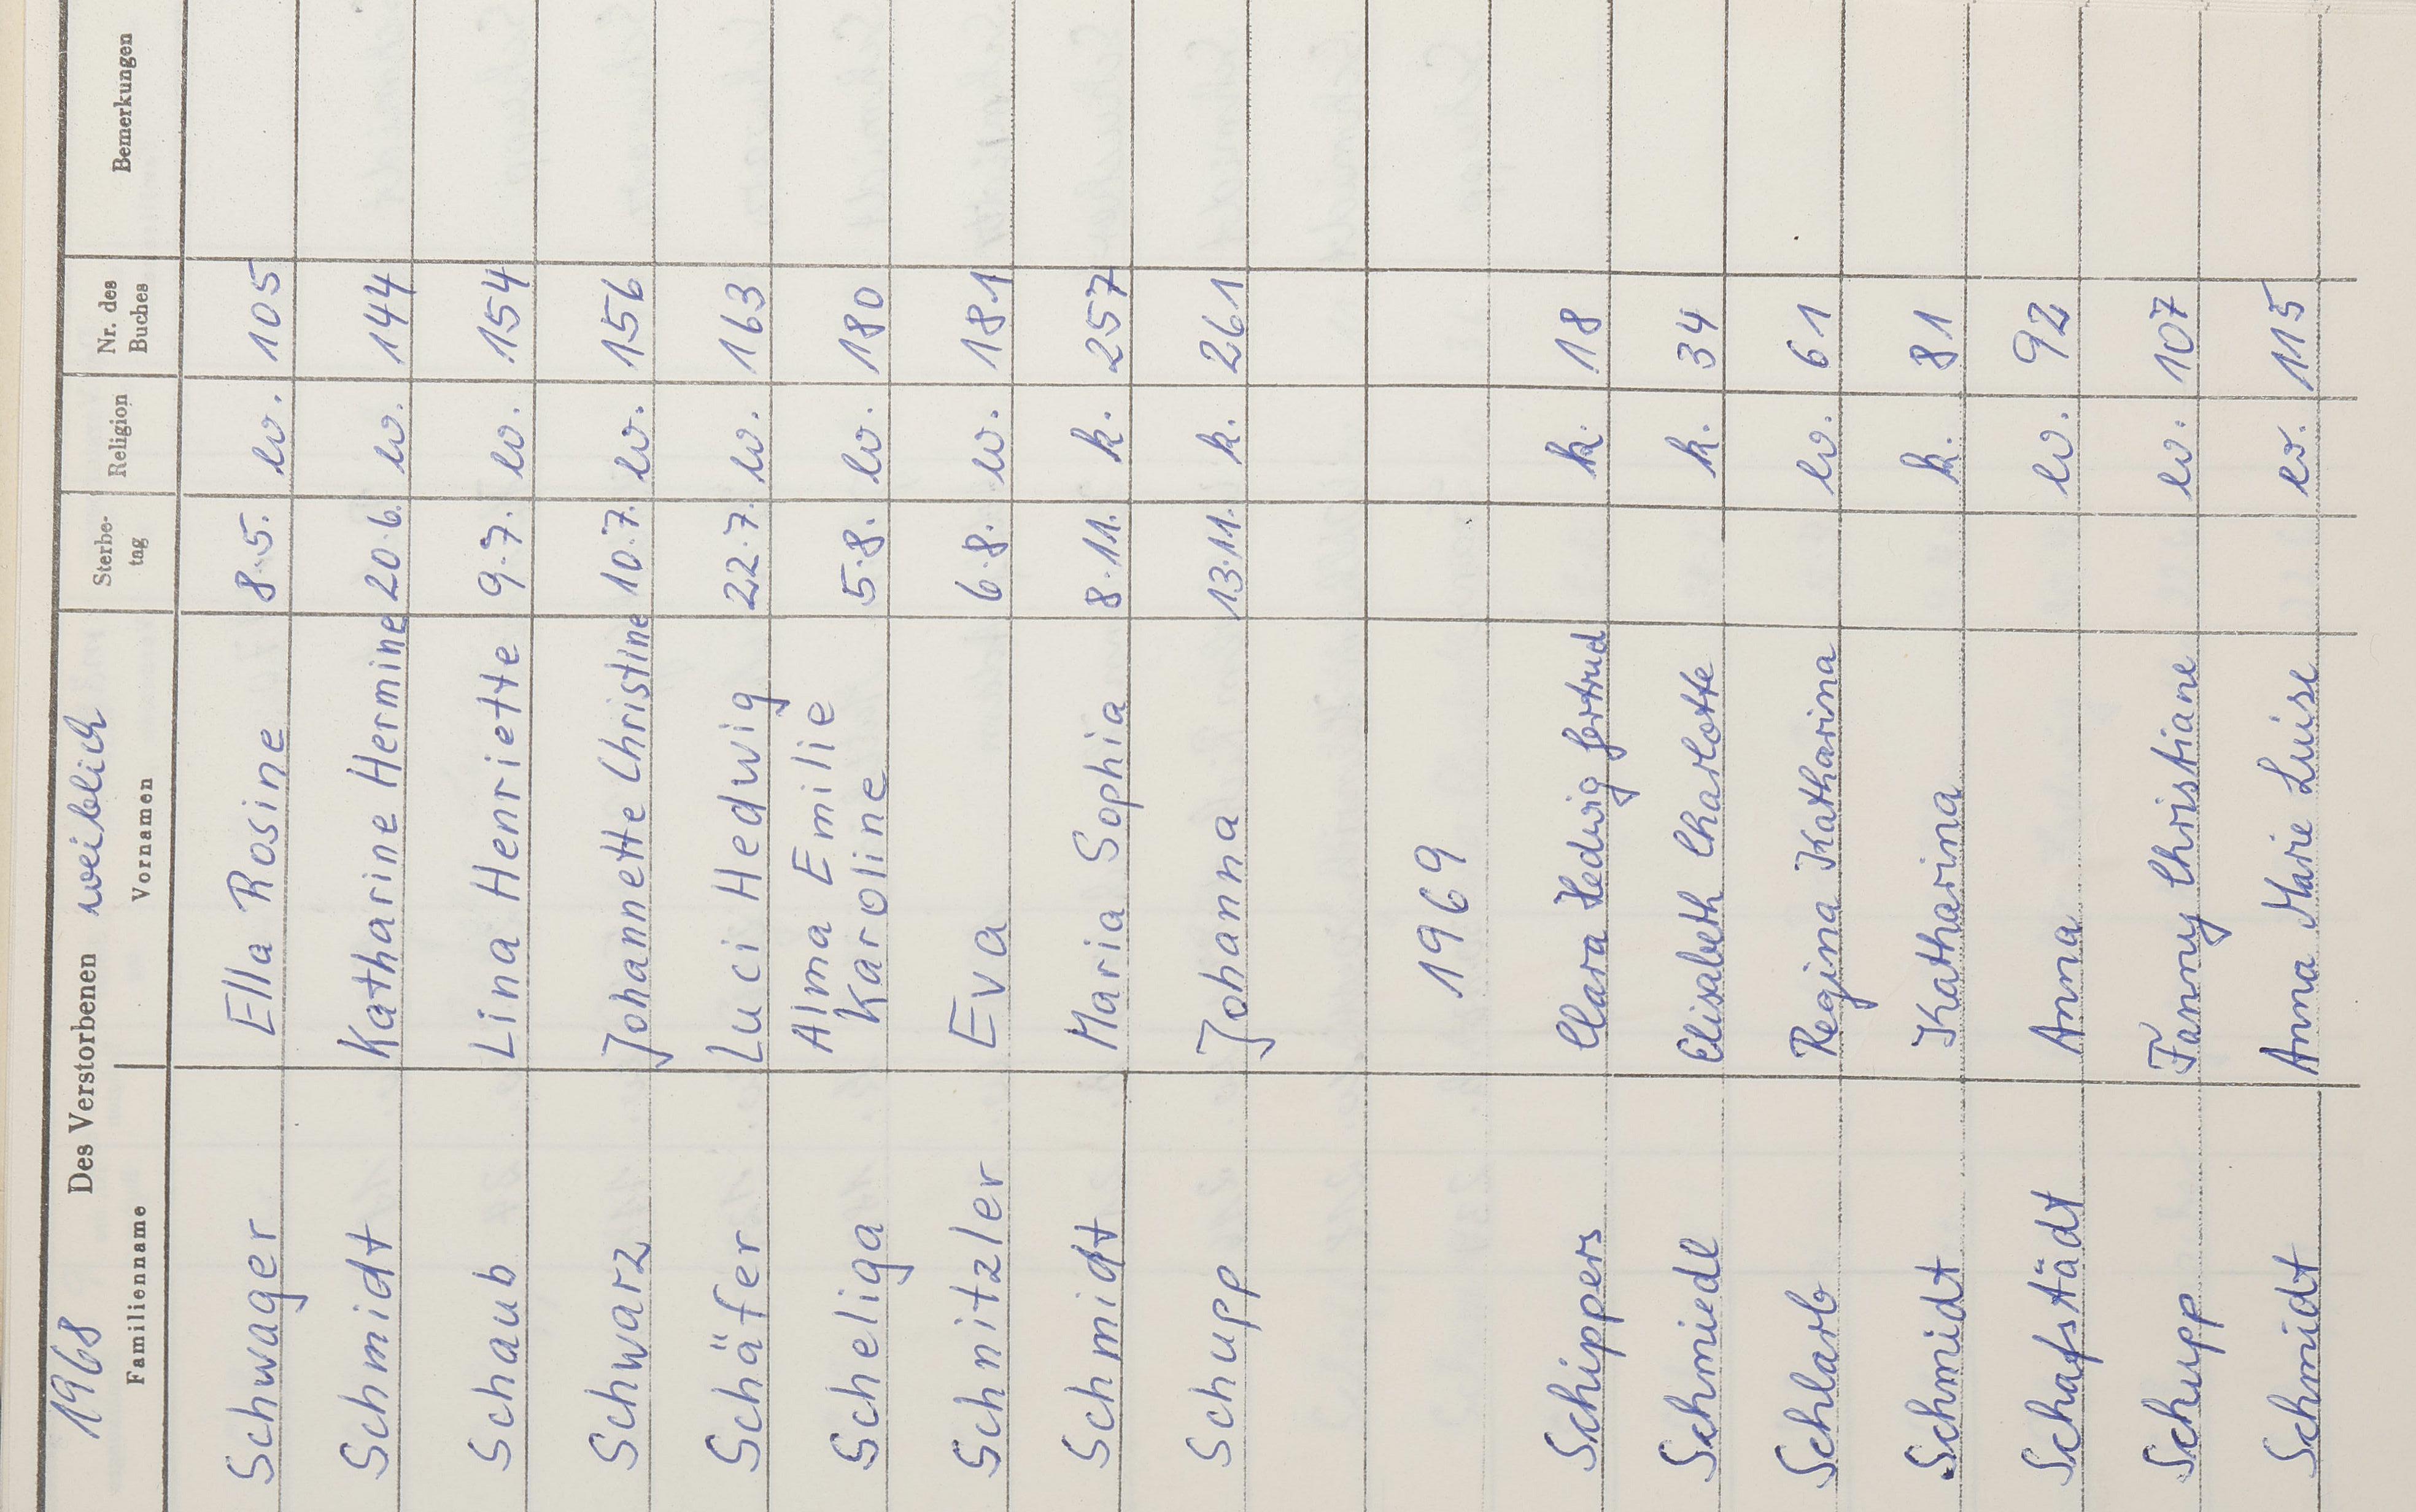 1968 Des Verstorbenen weiblich
Familienname Vornamen Sterbe-tag Religion Nr. des Buches Bemerkungen
Schwager Ella Rosine 8.5. ev. 105
Schmidt Katharine Hermine 20.6. ev. 144
Schaub Lina Henriette 9.7. ev. 154
Schwarz Johannette Christine 10.7. ev. 156
Schäfer Luci Hedwig 22.7. ev. 163
Scheliga Alma Emilie Karoline 5.8. ev. 180
Schnitzler Eva 6.8. ev. 181
Schmidt Maria Sophia 8.11. k. 257
Schupp Johanna 13.11. k. 261
1969
Schippers Clara Hedwig Gertrud k. 18
Schmiedl Elisabeth Charlotte k. 34
Schlarb Regina Katharina ev. 61
Schmidt Katharina k. 81
Schafstädt Anna ev. 92
Schupp Fanny Christiane ev. 107
Schmidt Anna Marie Luise ev. 115